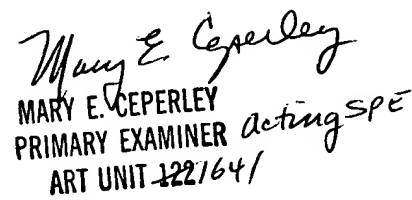 Mary E. Ceperley
MARY E. CEPERLEY
PRIMARY EXAMINER acting SPE
ART UNIT 122/641